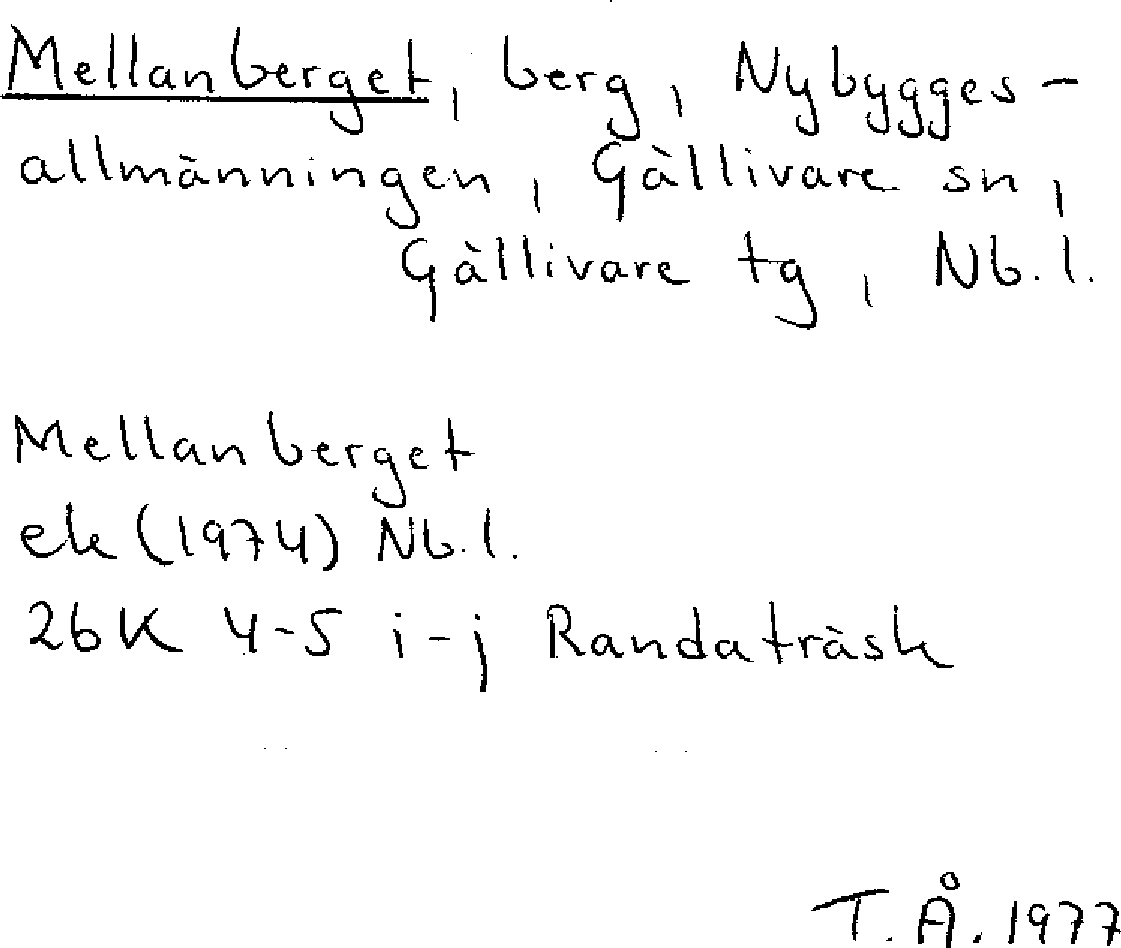 Mellanberget, berg, Nybygges-
allmänningen, Gällivare sn,
Gällivare tg, Nb.l.
Mellanberget
ek (1974) Nb.l.
26K 4-5 i-j Randaträsk
T.Å. 1977